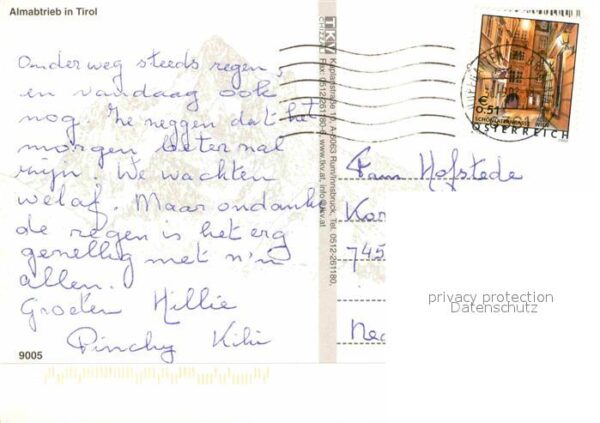 Almabtrieb in Tirol
Onderweg steeds regen,
en vandaag ook
nog. Ze zeggen dat het
morgen beter zal
zijn. We wachten
welaf. Maar ondanks
de regen is het erg
gezellig met z'n
allen.
Groeten Hillie
Pinchy Kiki
9005
TKV
Kaplanstraße 10, A-5063 Rum/Innsbruck, Tel. 0512-261180,
Fax: 0512-261180-4, www.tkv.at, info@tkv.at
€ 0.51
ÖSTERREICH
Fam Hofstede
Kor
745
Ned
privacy protection
Datenschutz